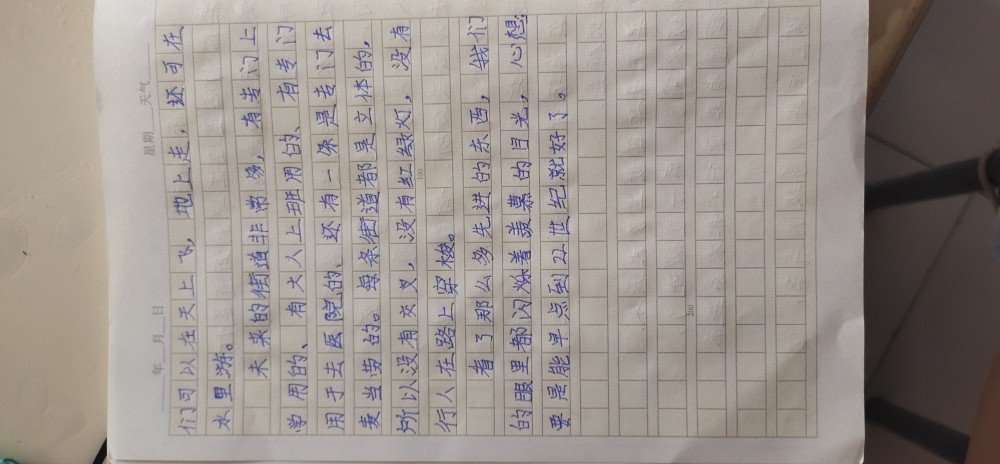 年 月 日 星期 天气
们可以在天上飞，地上走，还可在
水里游。
未来的街道非常多，有专门上
学用的、有大人上班用的、有专门
用于去医院的、还有一条是专门去
麦当劳的。每条街道都是立体的，
所以没有交叉，没有红绿灯，没有
100
行人在路上穿梭。
看了那么多先进的东西，我们
的眼里都闪烁着羡慕的目光，心想：
要是能早点到22世纪就好了。
200